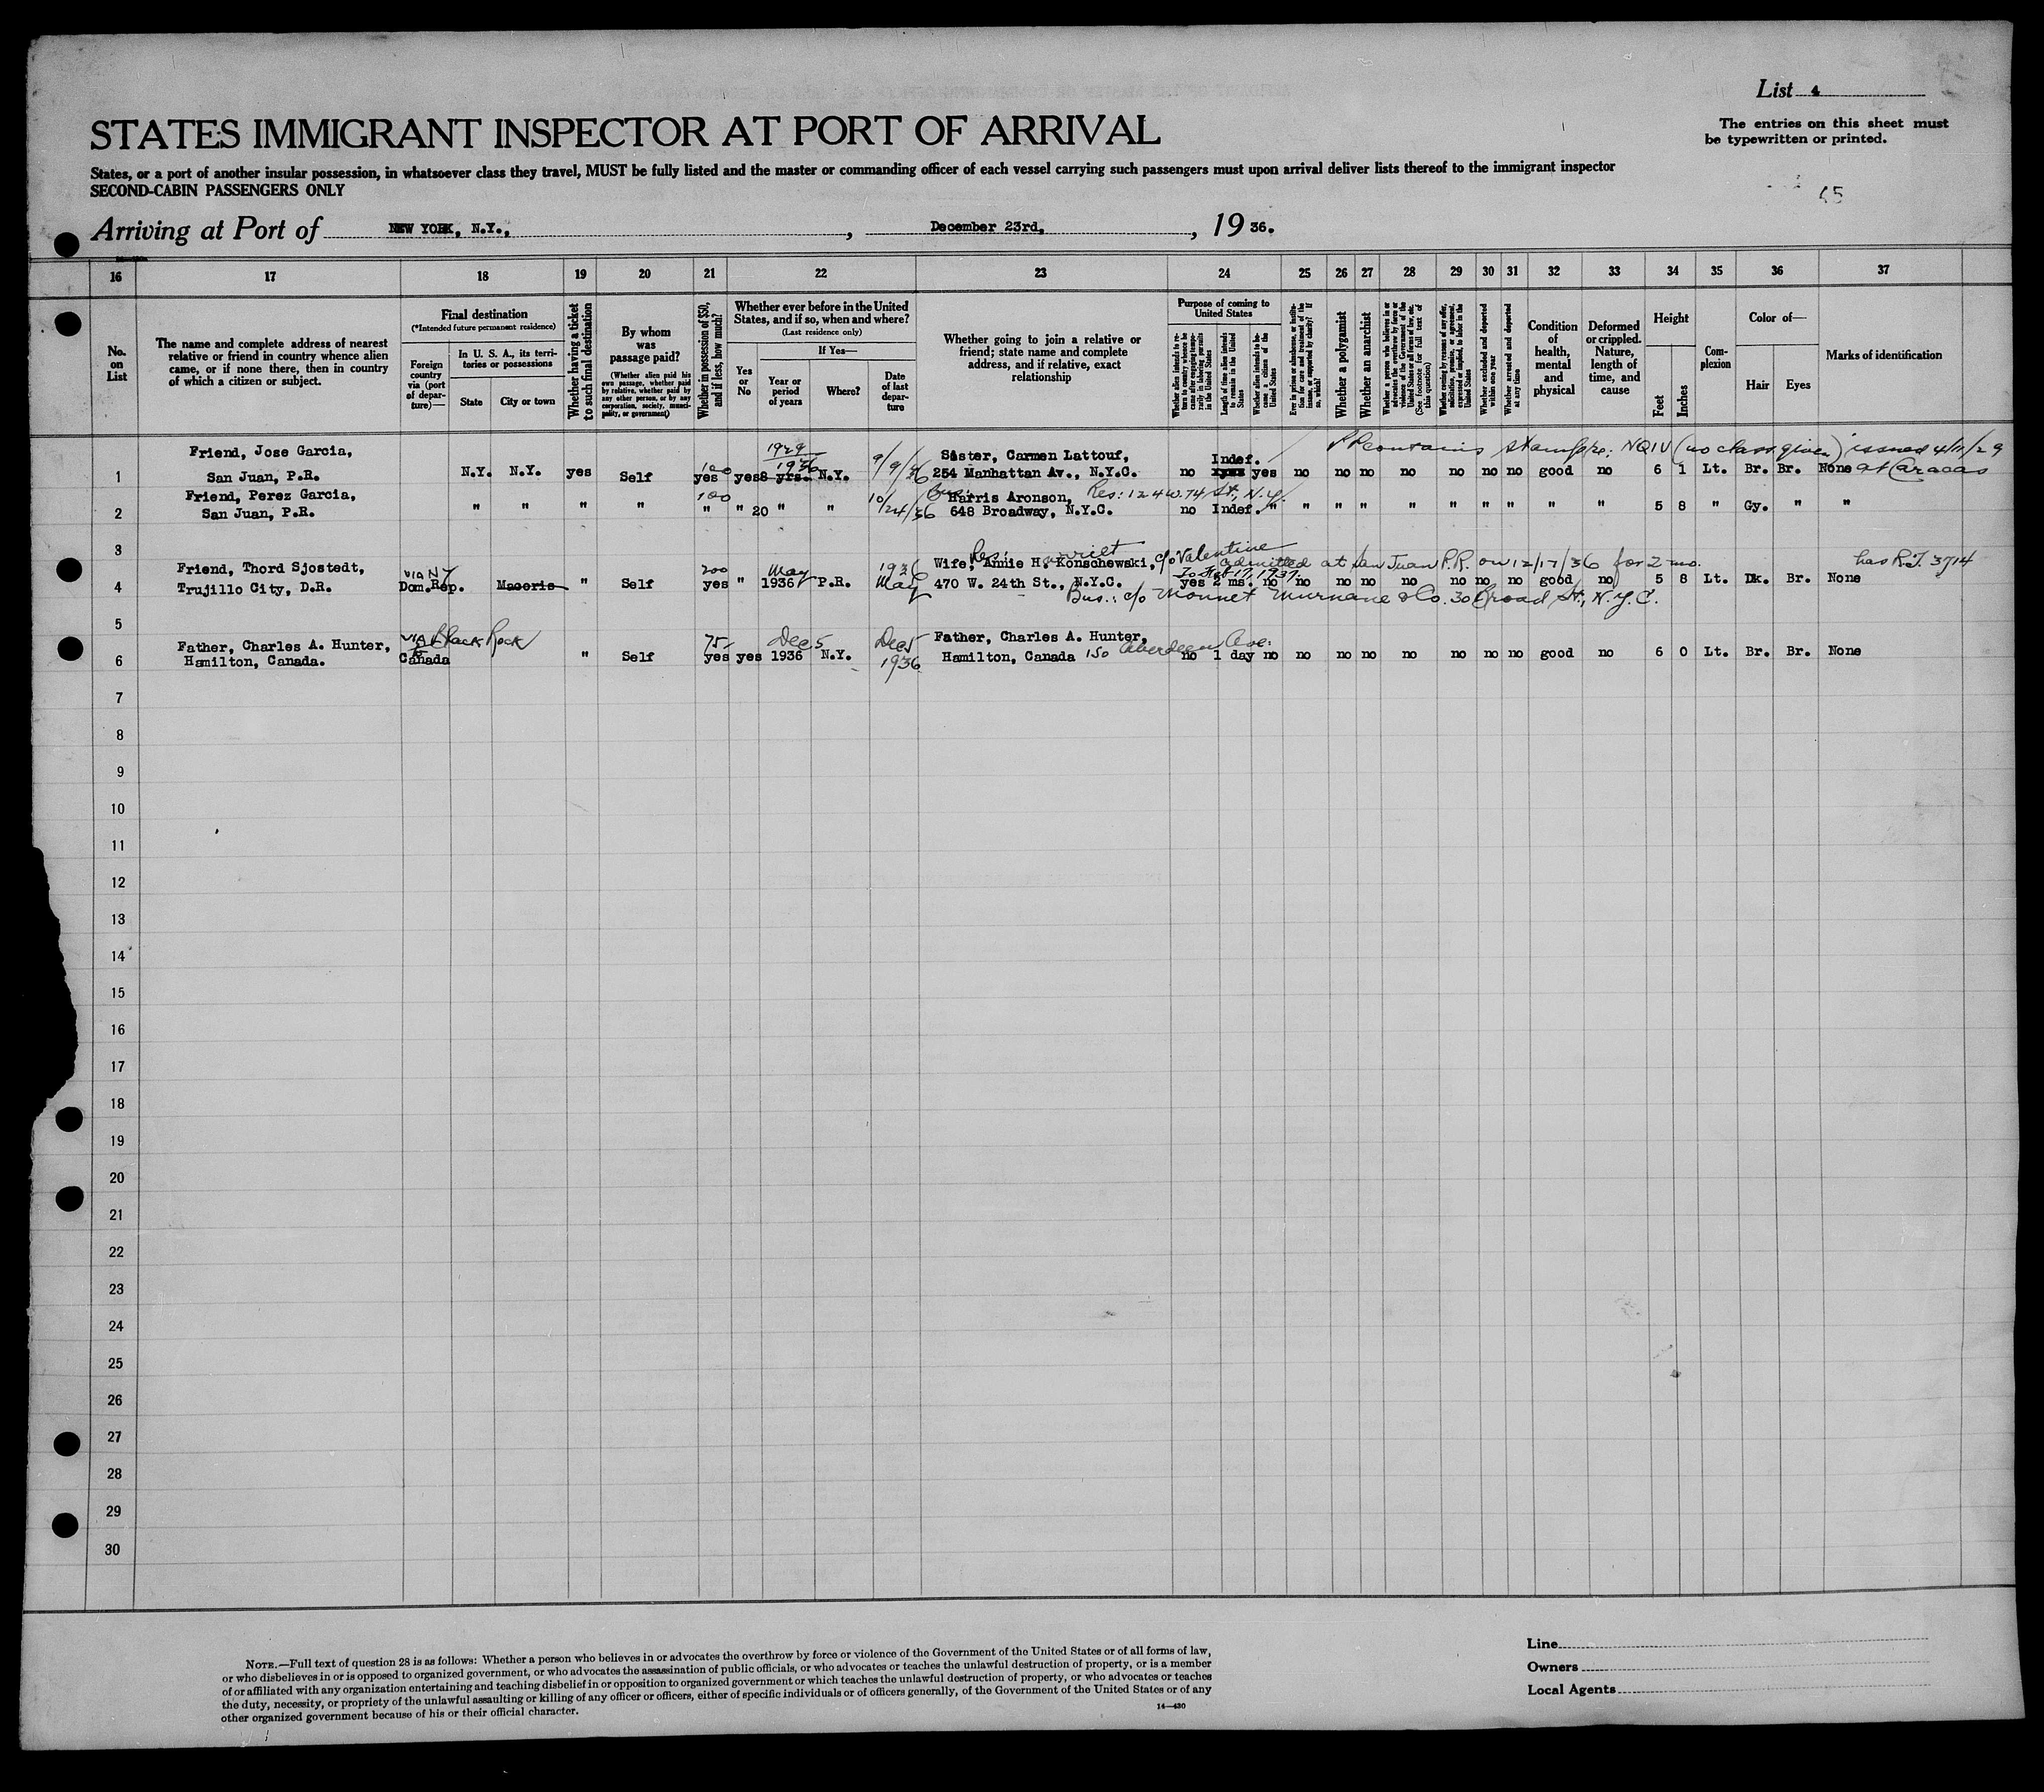 List 4
The entries on this sheet must
be typewritten or printed.
STATES IMMIGRANT INSPECTOR AT PORT OF ARRIVAL
States, or a port of another insular possession, in whatsoever class they travel, MUST be fully listed and the master or commanding officer of each vessel carrying such passengers must upon arrival deliver lists thereof to the immigrant inspector
SECOND-CABIN PASSENGERS ONLY
Arriving at Port of NEW YORK, N.Y., , December 23rd, , 19 36.
16 17 18 19 20 21 22 23 24 25 26 27 28 29 30 31 32 33 34 35 36 37
No. on List
The name and complete address of nearest
relative or friend in country whence alien
came, or if none there, then in country
of which a citizen or subject.
Final destination
(*Intended future permanent residence)
Foreign country via (port of departure)—
In U. S. A., its territories or possessions
State
City or town
Whether having a ticket to such final destination
By whom was passage paid?
(Whether alien paid his own passage, whether paid by relative, whether paid by any other person, or by any corporation, society, municipality, or government)
Whether in possession of $50, and if less, how much?
Whether ever before in the United
States, and if so, when and where?
(Last residence only)
Yes or No
If Yes—
Year or period of years
Where?
Date of last departure
Whether going to join a relative or
friend; state name and complete
address, and if relative, exact
relationship
Purpose of coming to United States
Whether alien intends to return to country whence he came after engaging temporarily in laboring pursuits in the United States
Length of time alien intends to remain in the United States
Whether alien intends to become a citizen of the United States
Ever in prison or almshouse, or institution for care and treatment of the insane, or supported by charity? If so, which?
Whether a polygamist
Whether an anarchist
Whether a person who believes in or advocates the overthrow by force or violence of the Government of the United States or all forms of law, etc. (See footnote for full text of this question)
Whether coming by reason of any offer, solicitation, promise, or agreement, expressed or implied, to labor in the United States
Whether excluded and deported within one year
Whether arrested and deported at any time
Condition of health, mental and physical
Deformed or crippled. Nature, length of time, and cause
Height
Feet
Inches
Complexion
Color of—
Hair
Eyes
Marks of identification
contains stamp re: NQIV (no class given) issued 4/11/29
at Caracas
1 Friend, Jose Garcia,
San Juan, P.R. N.Y. N.Y. yes Self 100 yes yes 8 yrs. 1929 1936 N.Y. 9/9/36 Sister, Carmen Lattouf,
254 Manhattan Av., N.Y.C. no Indef. yes no no no no no no no good no 6 1 Lt. Br. Br. None
2 Friend, Perez Garcia,
San Juan, P.R. " " " " 100 " " 20 " " 10/24/36 Bus: Harris Aronson, Res: 124 W. 74 St., N.Y.
648 Broadway, N.Y.C. no Indef. " " " " " " " " " " 5 8 " Gy. " "
3
4 Friend, Thord Sjostedt,
Trujillo City, D.R. via NY Dom.Rep. Macoris " Self 200 yes " May 1936 P.R. 1936 May Res: Wife, Annie H. Konschewski, c/o Valentine
470 W. 24th St., N.Y.C. yes 2 ms. no no no no no no no no good no 5 8 Lt. Dk. Br. None
admitted at San Juan P.R. on 12/17/36 for 2 mo.
To Feb 17, 1937.
has R.T. 3714
Bus.: c/o Monnet Murnane & Co. 30 Broad St., N.Y.C.
5
6 Father, Charles A. Hunter,
Hamilton, Canada. VIA Black Rock Canada " Self 75 yes yes Dec 5 1936 N.Y. Dec 5 1936 Father, Charles A. Hunter,
Hamilton, Canada 150 Aberdeen Ave. no 1 day no no no no no no no no good no 6 0 Lt. Br. Br. None
7
8
9
10
11
12
13
14
15
16
17
18
19
20
21
22
23
24
25
26
27
28
29
30
NOTE.—Full text of question 28 is as follows: Whether a person who believes in or advocates the overthrow by force or violence of the Government of the United States or of all forms of law,
or who disbelieves in or is opposed to organized government, or who advocates the assassination of public officials, or who advocates or teaches the unlawful destruction of property, or is a member
of or affiliated with any organization entertaining and teaching disbelief in or opposition to organized government or which teaches the unlawful destruction of property, or who advocates or teaches
the duty, necessity, or propriety of the unlawful assaulting or killing of any officer or officers, either of specific individuals or of officers generally, of the Government of the United States or of any
other organized government because of his or their official character.
14—430
Line
Owners
Local Agents